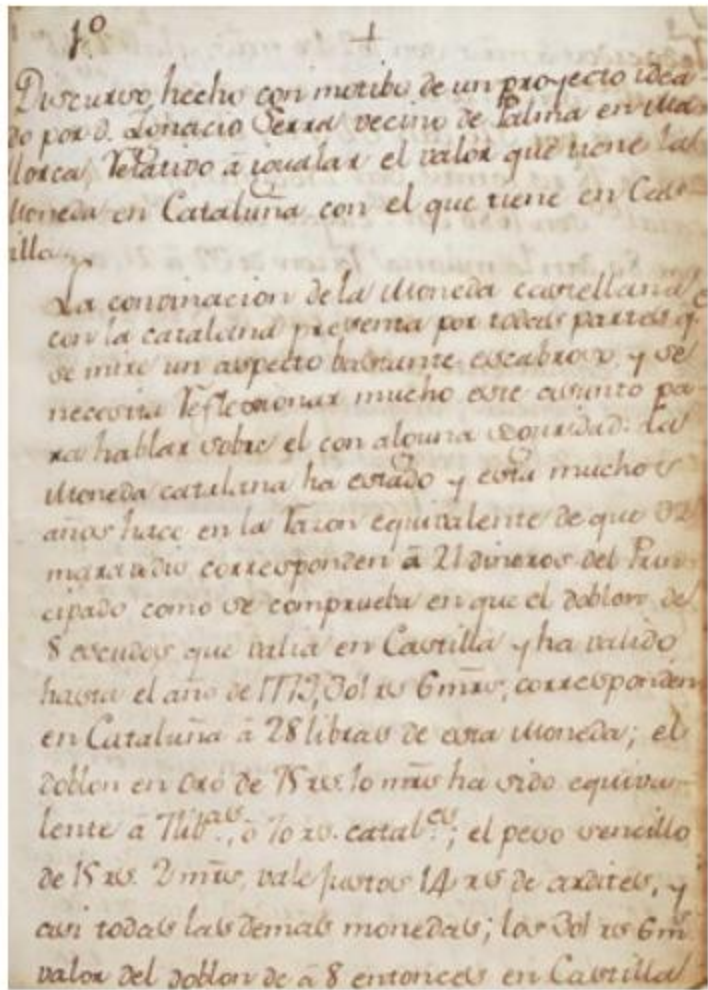 1º +
Discurso hecho con motibo de un proyecto idea-
do por d. Ignacio Serra vecino de Palma en Ma-
llorca, Relativo à igualar el valor que tiene la
Moneda en Cataluña con el que tiene en Cas-
illa.
La convinacion de la Moneda castellana
con la catalana presenta por todas partes q.
se mire un aspecto bastante escabroso, y se
necesita Reflexionar mucho este asunto pa-
ra hablar sobre el con alguna seguridad. La
Moneda catalana ha estado y está muchos
años hace en la Razon equivalente de que 32
maravadis corresponden à 21 dineros del Prin-
cipado como se comprueba en que el doblon de
8 escudos que valia en Castilla y ha valido
hasta el año de 1779, 301 rs 6 mrs, corresponden
en Cataluña à 28 libras de esta Moneda; el
doblon en oro de 75 rs. 10 mrs ha sido equiva-
lente à 7 lib.as, ò 70 rs. catal.es; el peso sencillo
de 15 rs. 2 mrs, vale justos 14 rs de ardites, y
asi todas las demas monedas; los 301 rs 6 m
valor del doblon de à 8 entonces en Castilla